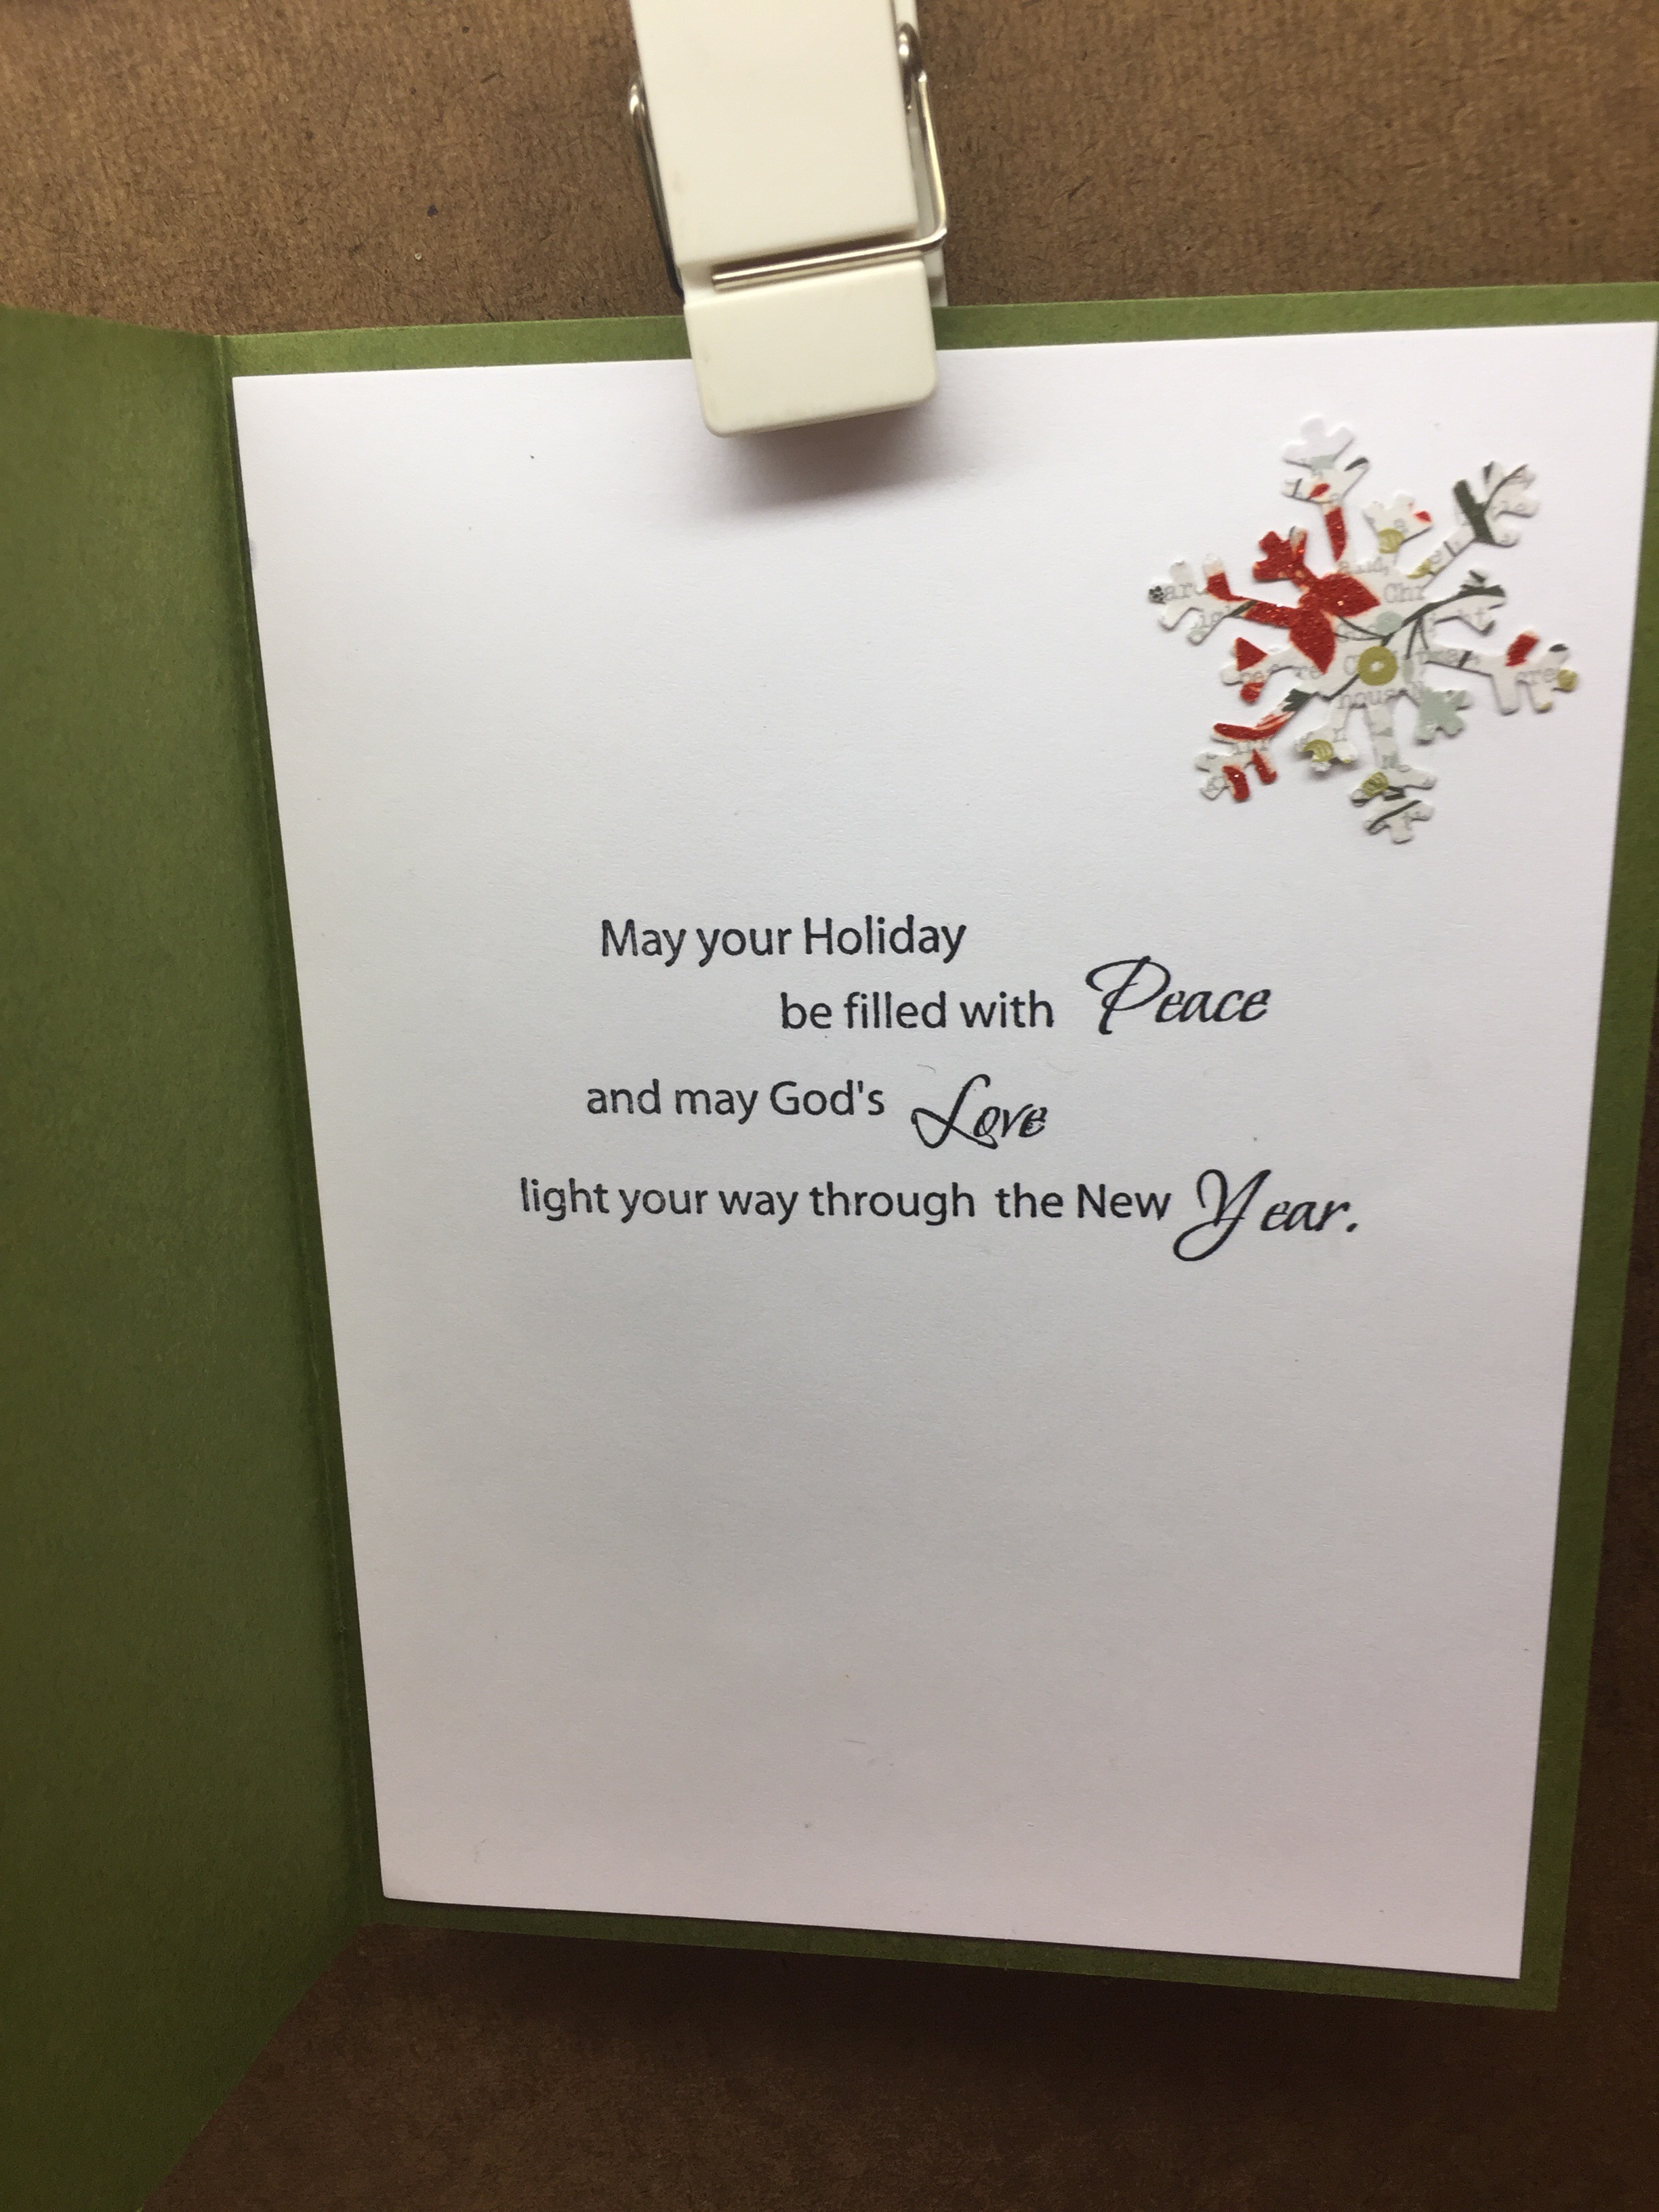 May your Holiday
be filled with Peace
and may God's Love
light your way through the New Year.